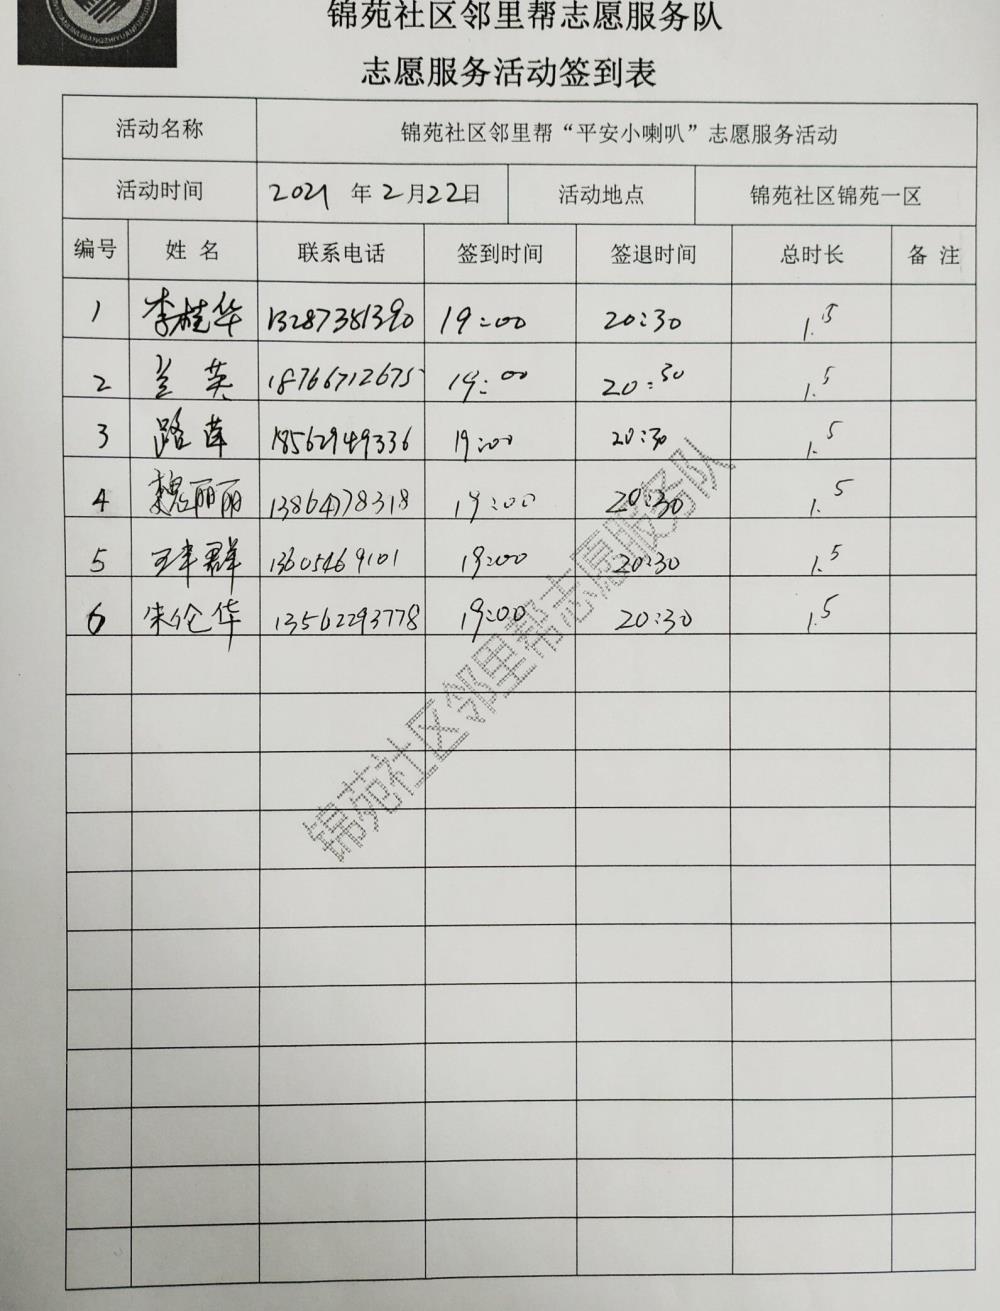 锦苑社区邻里帮志愿服务队
志愿服务活动签到表
活动名称 锦苑社区邻里帮“平安小喇叭”志愿服务活动
活动时间 2021 年 2 月 22 日 活动地点 锦苑社区锦苑一区
编号 姓 名 联系电话 签到时间 签退时间 总时长 备 注
1 李桂华 13287381390 19:00 20:30 1.5
2 兰英 18766712675 19:00 20:30 1.5
3 路萍 18562949336 19:00 20:30 1.5
4 魏丽丽 13864778318 19:00 20:30 1.5
5 群 13605469101 19:00 20:30 1.5
6 朱伦华 13562293778 19:00 20:30 1.5
锦苑社区邻里帮志愿服务队